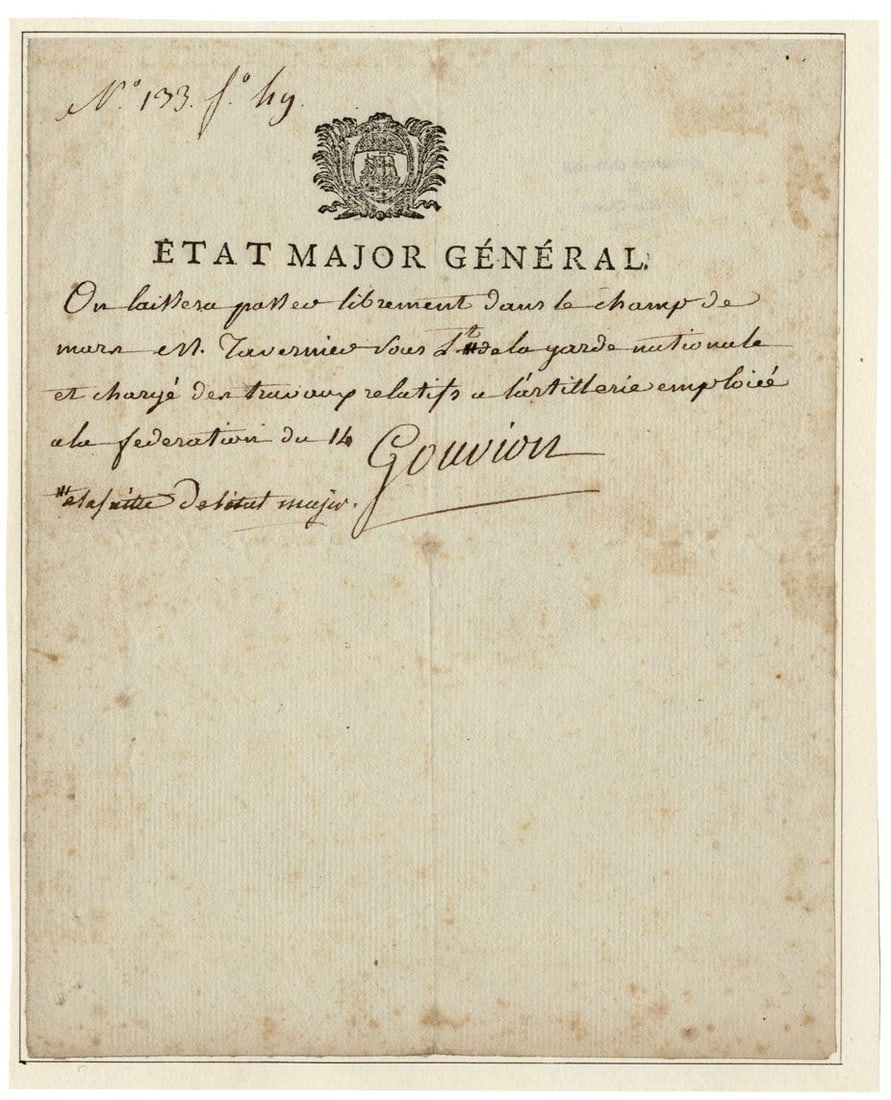 N.º 133. f.º hy.
ÉTAT MAJOR GÉNÉRAL.
On laissera passer librement dans le champ de
mars M. Tavernier sous Lt de la garde nationale
et chargé des travaux relatifs a l'artillerie emploiée
a la federation du 14 Gouvion
# a la suitte de l'état major.